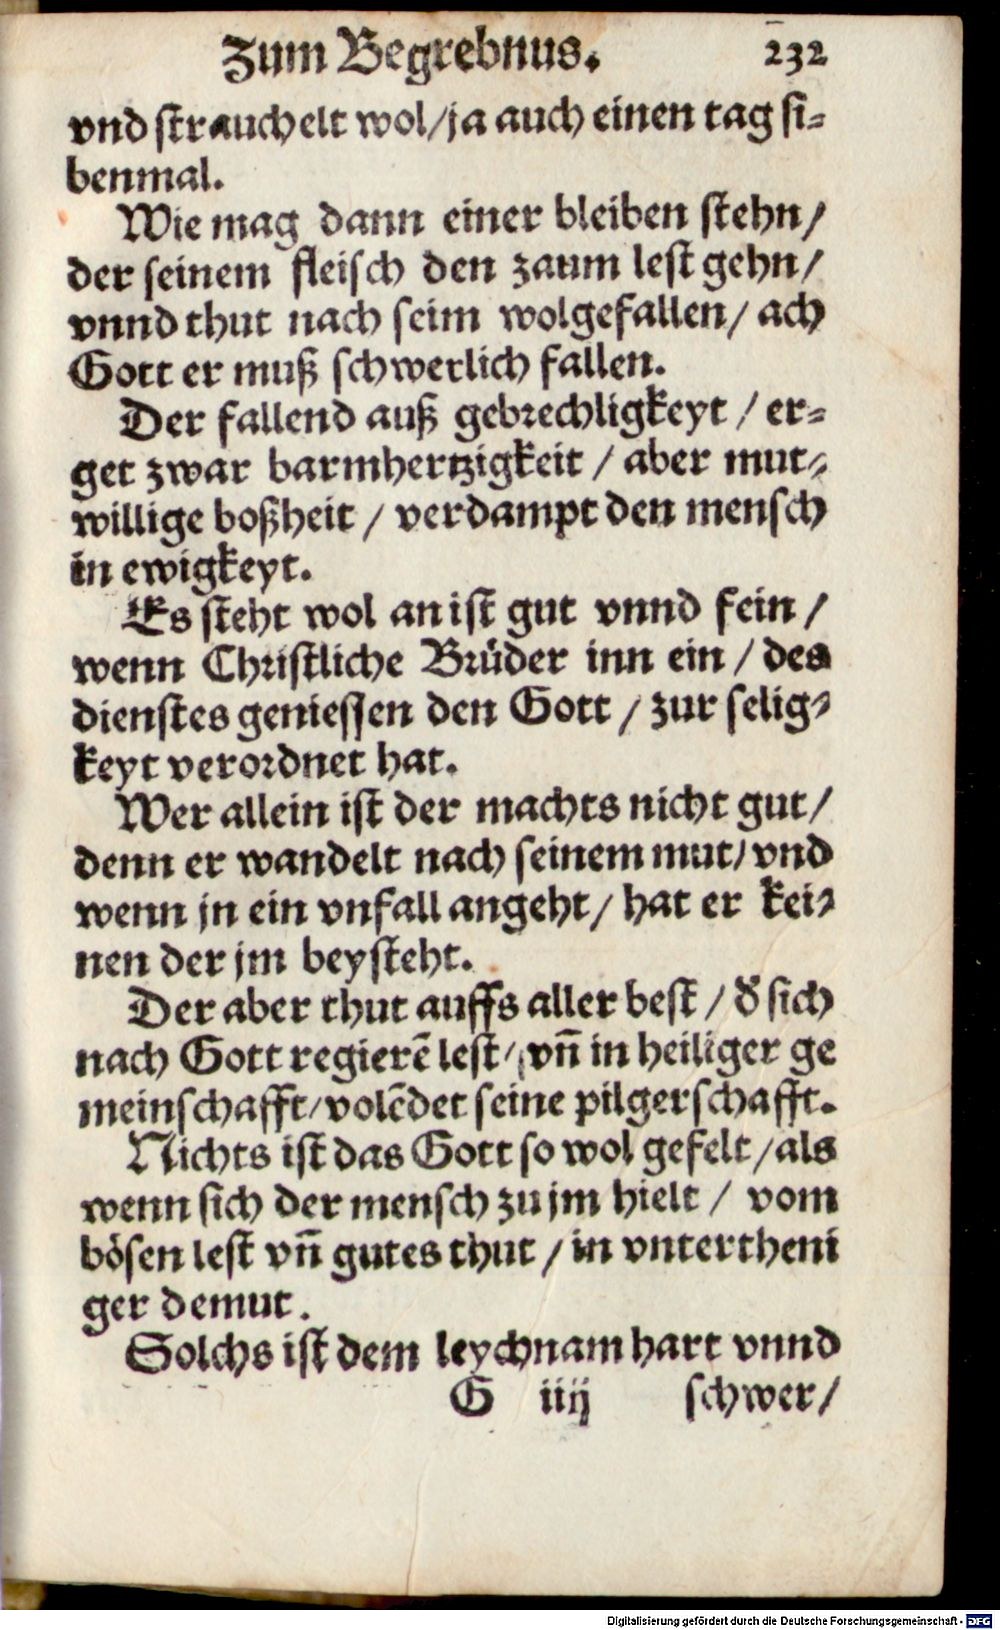 Zum Begrebnus. 232
vnd strauchelt wol/ja auch einen tag si⸗
benmal.
Wie mag dann einer bleiben stehn/
der seinem fleisch den zaum lest gehn/
vnnd thut nach seim wolgefallen/ ach
Gott er muß schwerlich fallen.
Der fallend auß gebrechligkeyt / er⸗
get zwar barmhertzigkeit / aber mut⸗
willige boßheit / verdampt den mensch
in ewigkeyt.
Es steht wol an ist gut vnnd fein /
wenn Christliche Brüder inn ein / des
dienstes geniessen den Gott / zur selig⸗
keyt verordnet hat.
Wer allein ist der machts nicht gut/
denn er wandelt nach seinem mut/ vnd
wenn jn ein vnfall angeht/ hat er kei⸗
nen der jm beysteht.
Der aber thut auffs aller best / d̕ sich
nach Gott regierẽ lest/ vñ in heiliger ge
meinschafft/ volẽdet seine pilgerschafft.
Nichts ist das Gott so wol gefelt / als
wenn sich der mensch zu jm hielt / vom
bösen lest vñ gutes thut / in vntertheni
ger demut.
Solchs ist dem leychnam hart vnnd
G iiij schwer/
Digitalisierung gefördert durch die Deutsche Forschungsgemeinschaft - DFG